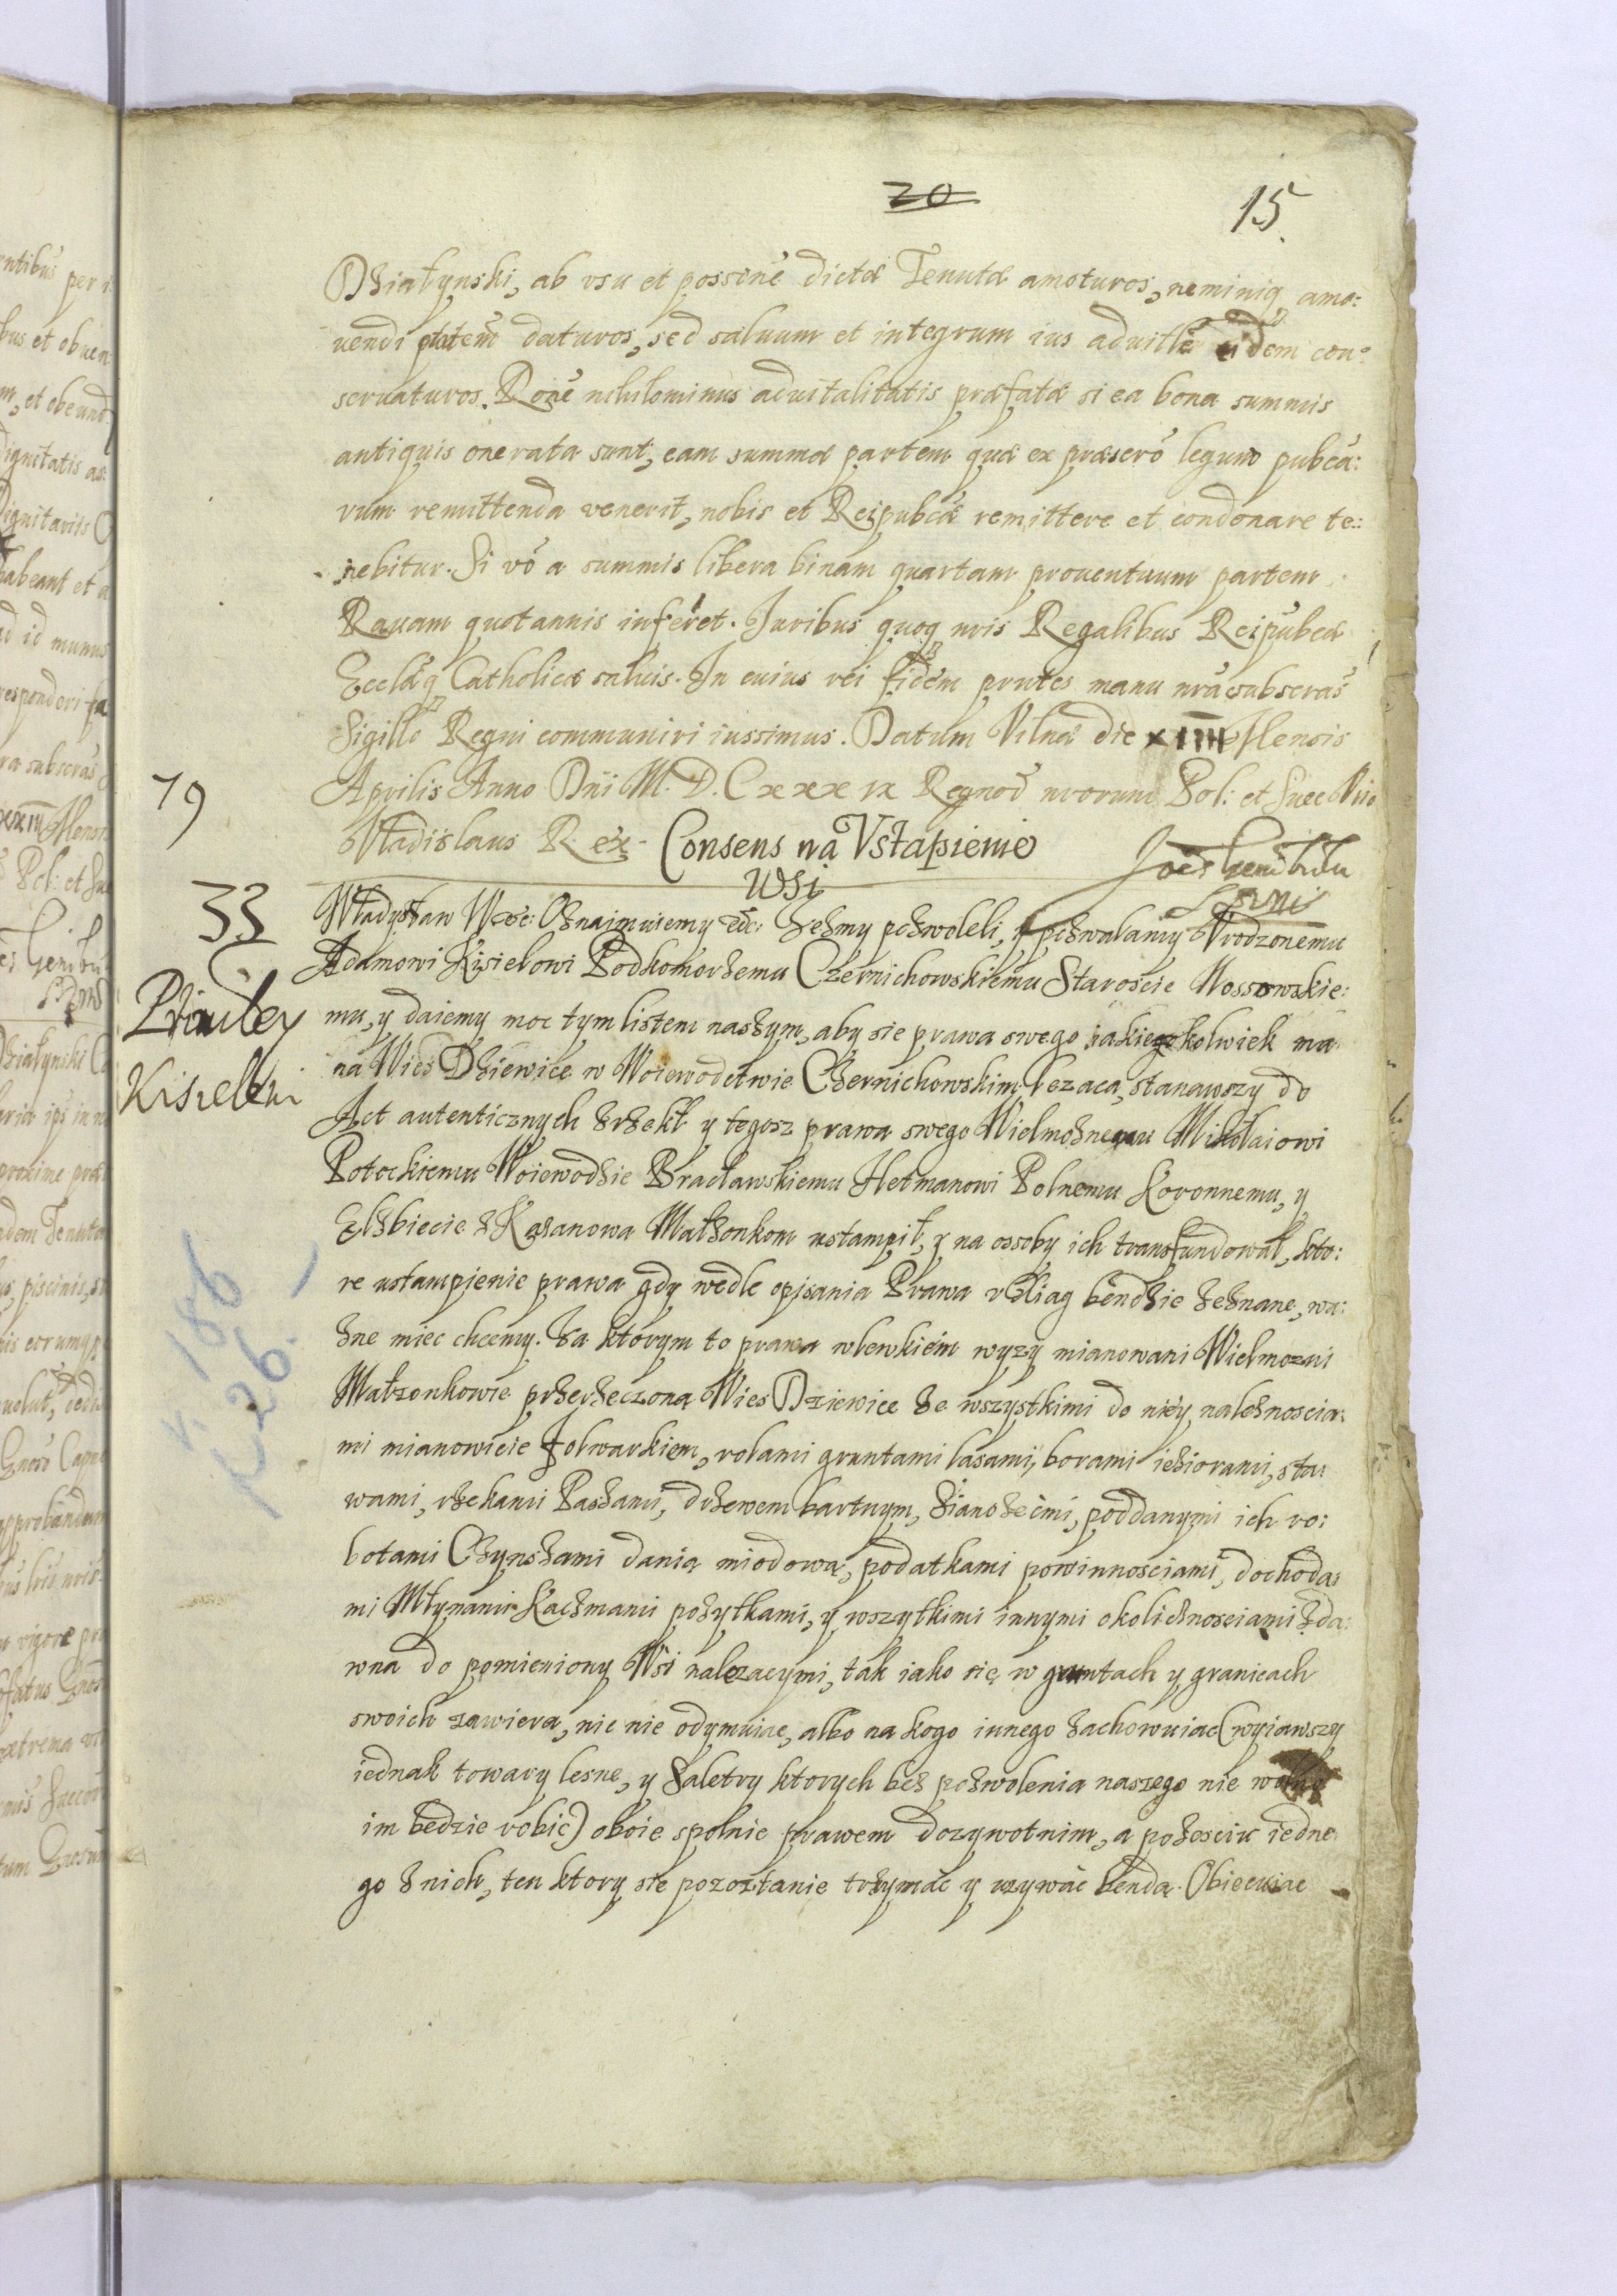 20
15
Działynski, ab usu et possene dictæ Tenutæ amoturos, neminiq amo:
uendi ptatem daturos, sed saluum et integrum ius aduitle eidem con:
seruaturos. Rone nihilominus aduitalitatis præfatæ si ea bona summis
antiquis onerata sunt, eam summæ partem quæ ex præscro legum pubca:
rum remittenda venerit, nobis et Reipubcæ remittere et condonare te:
nebitur. Si vo a summis libera binam quartam prouentuum partem
Rauam quotannis inferet. Juribus quoq nris Regalibus Reipubcæ
Ecclæq Catholicæ saluis. In cuius rei fidem pntes manu nra subscras
Sigillo Regni communiri iussimus. Datum Vilnæ die XIIII Mensis
Aprilis Anno Dni M.D.Cxxxix Regnor nrorum Pol: et Suec
Vladislaus Rex
Consens na Vstąpienie
Wsi
79
33
Kisielowi
Władysław W &c: Oznajmuiemy &c: Zeżmy pozwoleli, y pozwalamy Vrodzonemu
Adamowi Kisielowi Podkomorzemu Czernichowskiemu Staroscie Nossowskie:
mu, y daiemy moc tym listem naszym, aby sie prawa swego iakiegokolwiek ma
na Wieś Dziewice w Woiewodctwie Czernichowskim lezaca, stanawszy do
Act autenticznych zrzekł y tegosz prawa swego Wielmożnemu Mikołaiowi
Potockiemu Woiewodzie Bracławskiemu Hetmanowi Polnemu Koronnemu, y
Elżbiecie z Kazanowa Małzonkom ustampił, y na ossoby ich transfundował, kto:
re ustampienie prawa gdy wedle opisania Prawa v Xiag bendzie zeznane, wa:
zne miec chcemy. Za ktorym to prawa wlewkiem wyzy mianowani Wielmozni
Małzonkowie przerzeczona Wies Dziewice ze wszystkimi do niey należnoscia:
mi mianowicie folwarkiem, rolami gruntami lasami, borami ieziorami, sta:
wami, rzekami Paszami, drzewem bartnym, sianozećmi, poddanymi ich ro:
botami Czynszami danią miodową, podatkami powinnosciami, dochoda:
mi Młynami Kaczmami pożytkami, y wszytkimi innymi okolicznosciami zda:
wna do pomieniony Wsi nalezacymi, tak iako się w gruntach y granicach
swoich zawiera, nic nie odymuiac, albo na kogo innego zachowuiac (wyiawszy
iednak towary lesne, y Saletry ktorych bez pozwolenia naszego nie wolno
im bedzie robić) oboie spolnie prawem dozywotnim, a po zesciu iedne
go z nich, ten ktory sie pozostanie trzymac y uzywac benda. Obiecuiac
186
K 26.